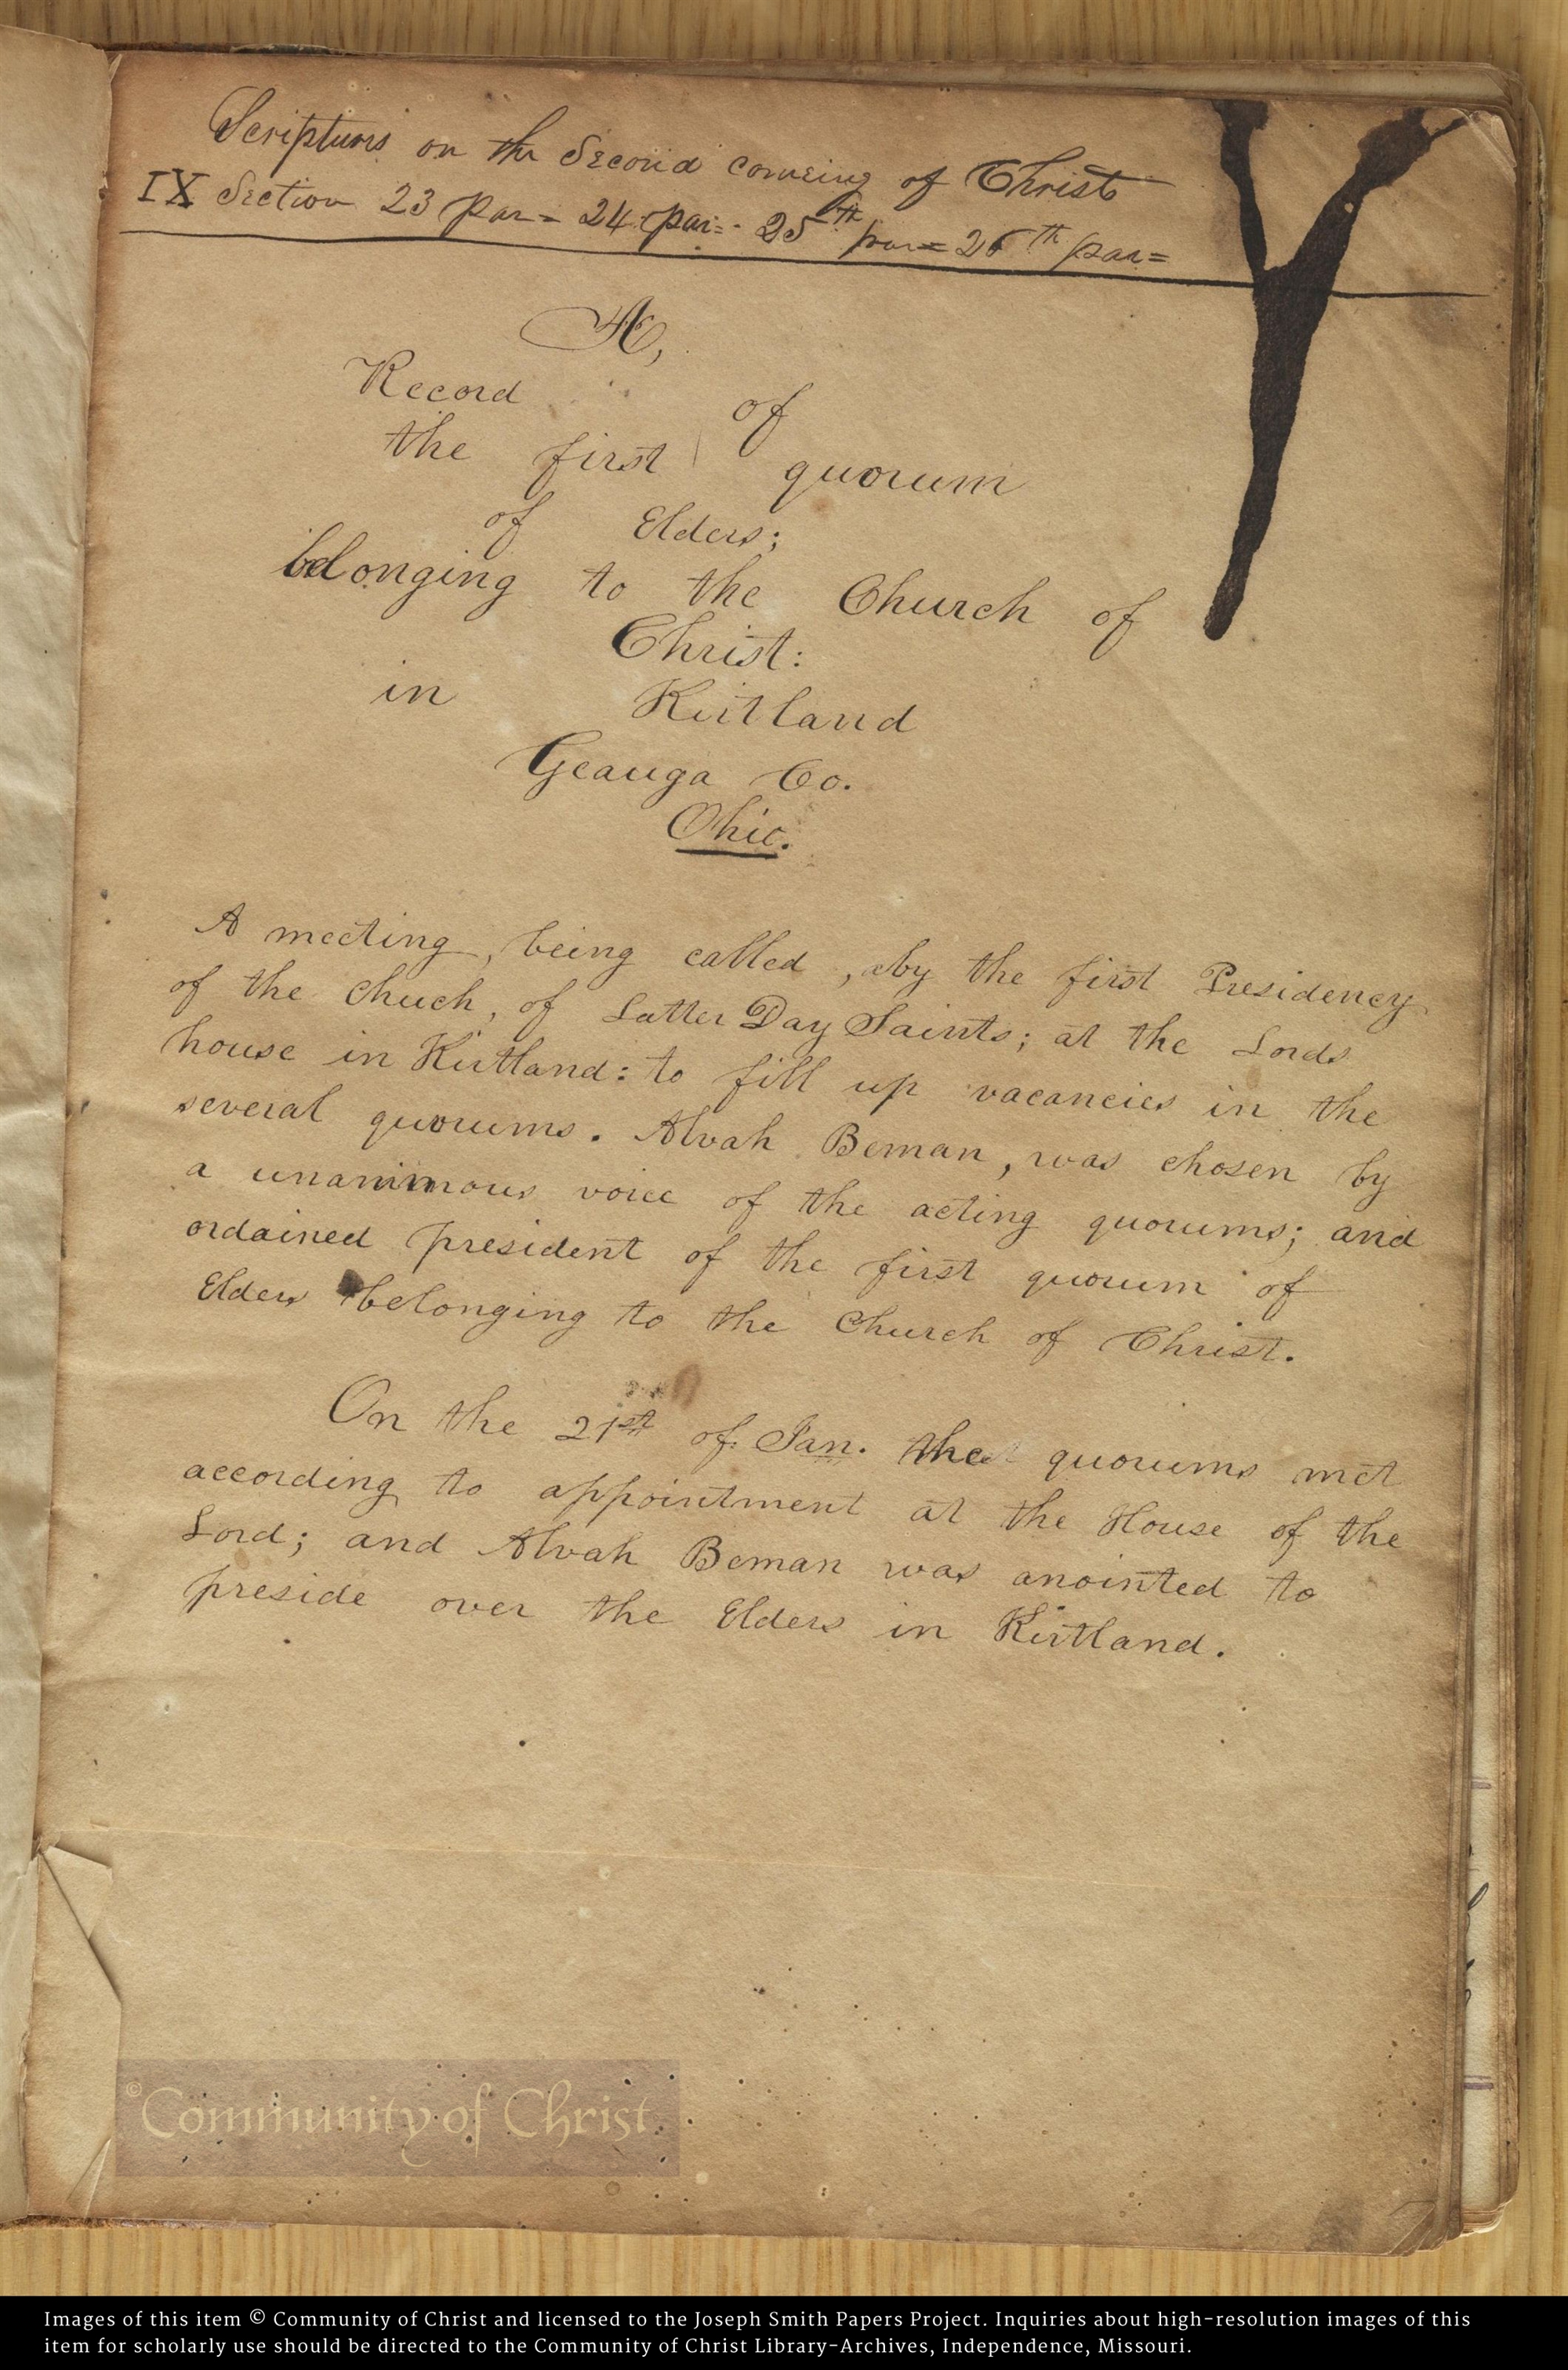 Scriptures on the Second comeing of Christ
IX Section 23 Par= 24 par=. 25th par= 26th par=
A,
Record of
the first quorum
of Elders;
belonging to the Church of
Christ:
in Kirtland
Geauga Co.
Ohio.
A meeting, being called, by the first Presidency
of the Chuch, of Latter Day Saints; at the Lords
house in Kirtland: to fill up vacancies in the
several quorums. Alvah Beman, was chosen by
a unanimous voice of the acting quorums; and
ordained president of the first quorum of
Elders belonging to the Church of Christ.
On the 21st of Jan. the quorums met
according to appointment at the House of the
Lord; and Alvah Beman was anointed to
preside over the Elders in Kirtland.
© Community of Christ
Images of this item © Community of Christ and licensed to the Joseph Smith Papers Project. Inquiries about high-resolution images of this
item for scholarly use should be directed to the Community of Christ Library-Archives, Independence, Missouri.